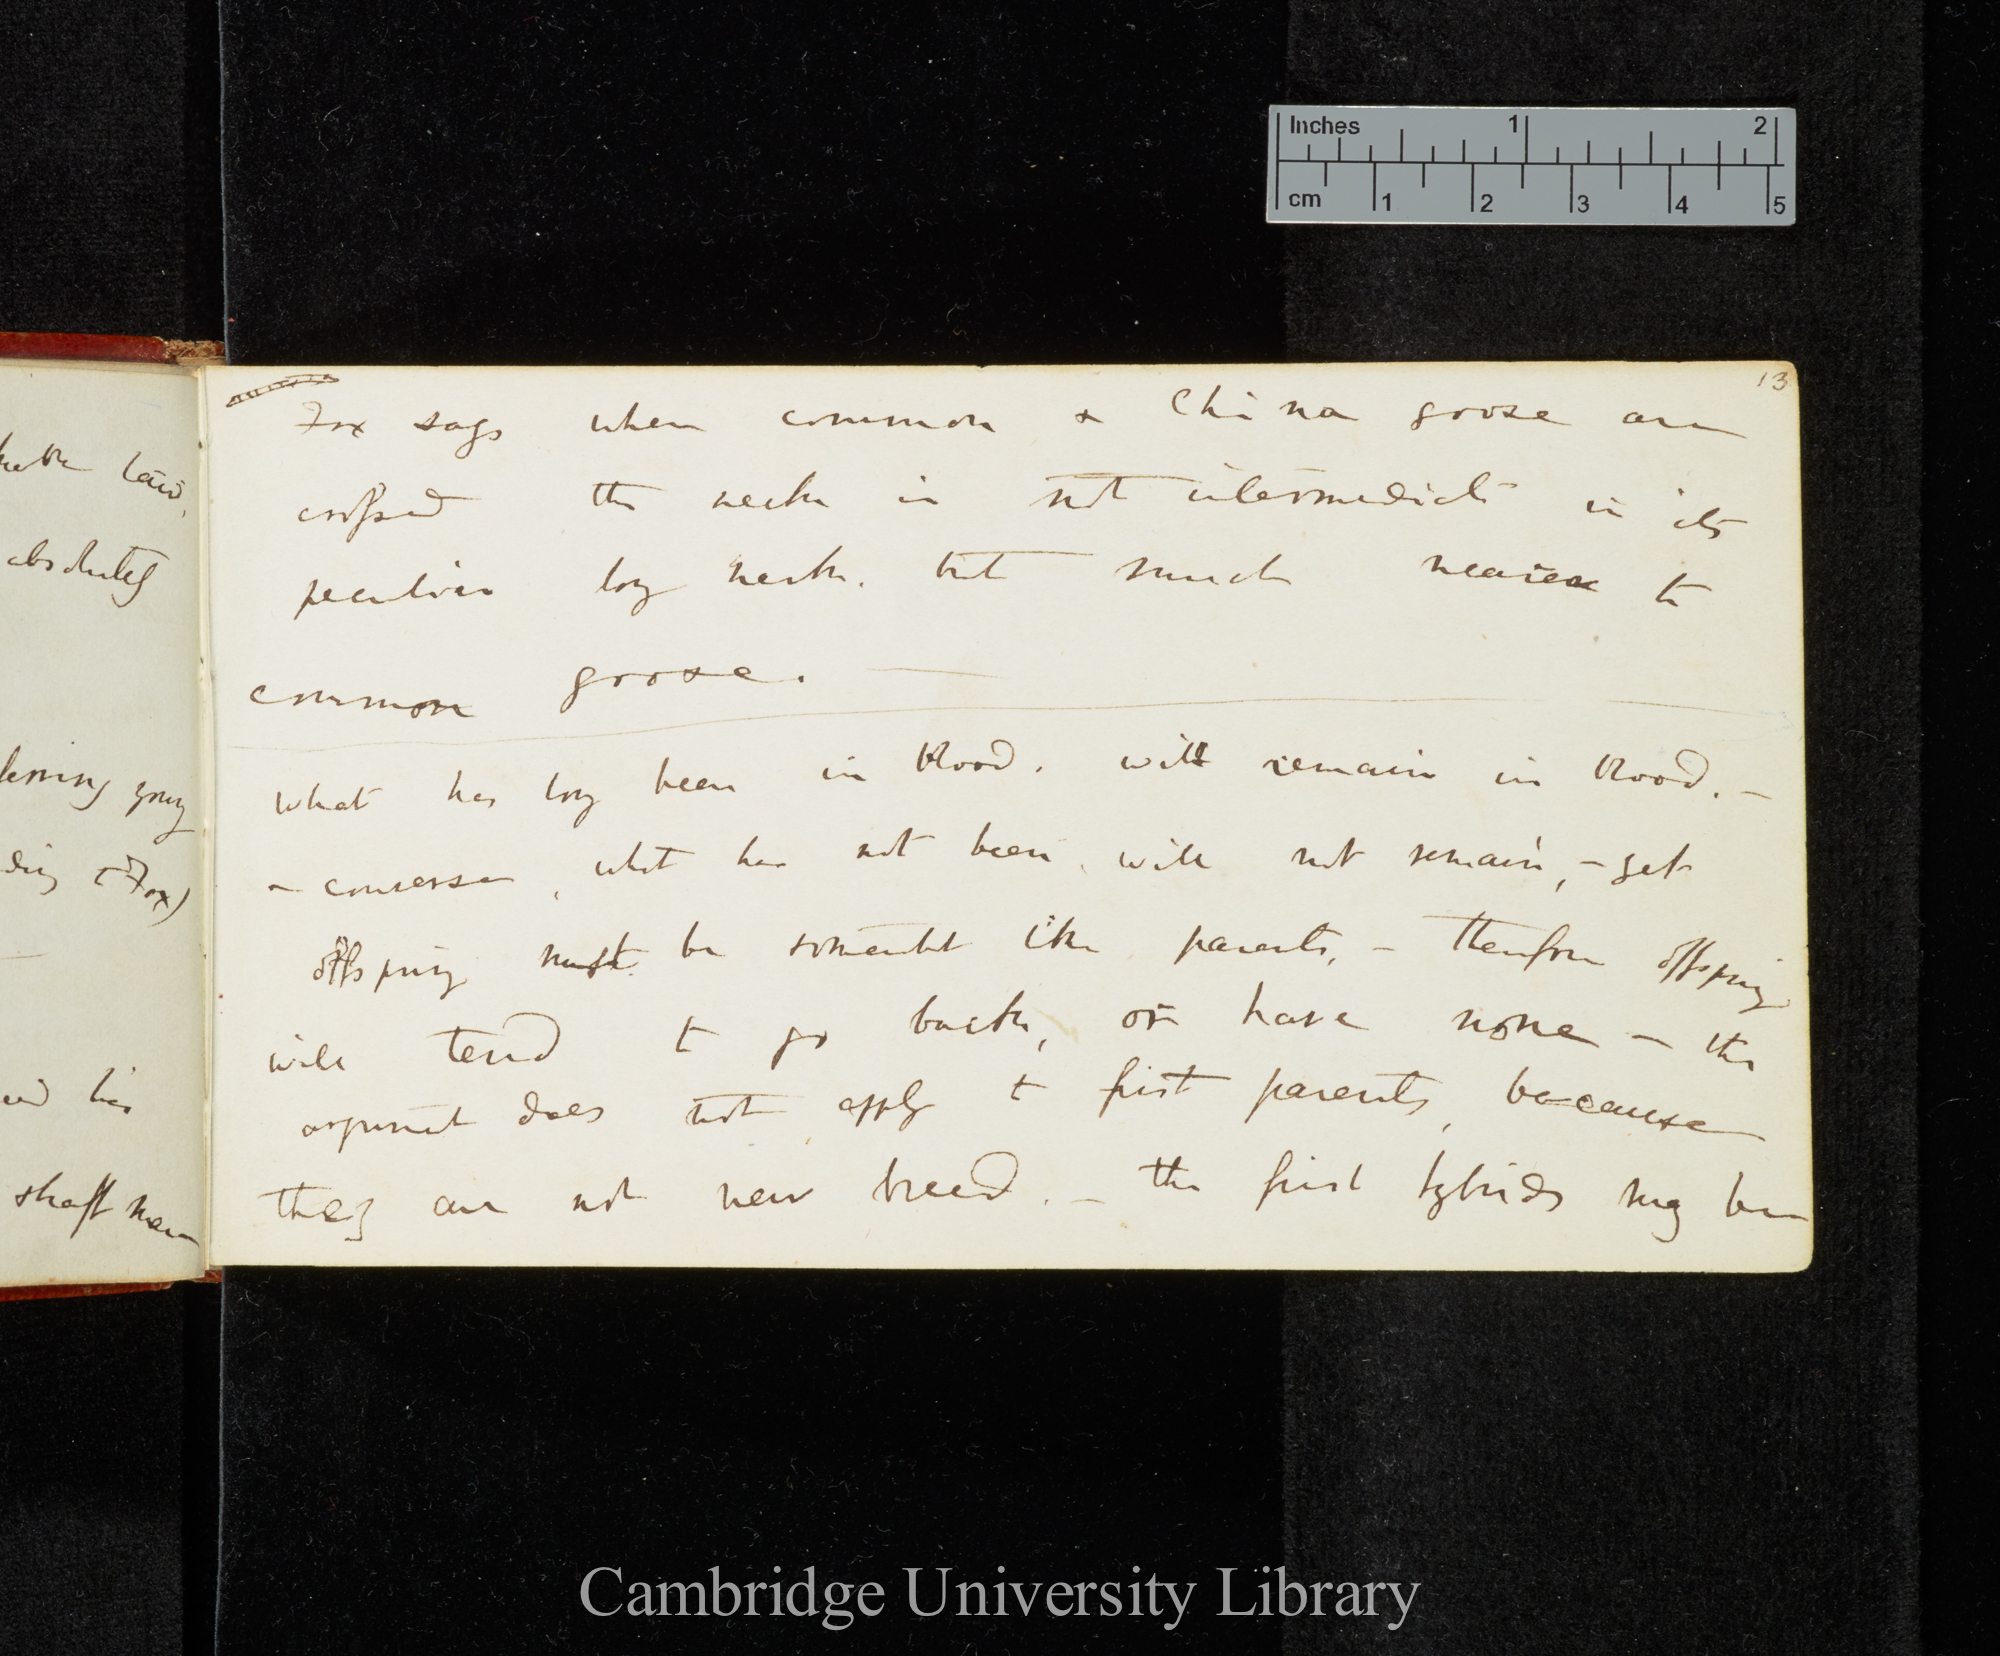 Inches 1 2
cm 1 2 3 4 5
13
Fox says when common & China goose are
crossed the neck is not intermediate in its
peculiar long neck. but much nearer to
common goose. —
What has long been in blood, will remain in blood. —
— converse, what has not been, will not remain, — yet
offspring must be somewhat like parents, — therefore offspring
will tend to go back, or have none — this
argument does not apply to first parents, because
they are not new breed. — the first hybrids may be
law,
absolutely
young
(Fox)
his
shaft
Cambridge University Library